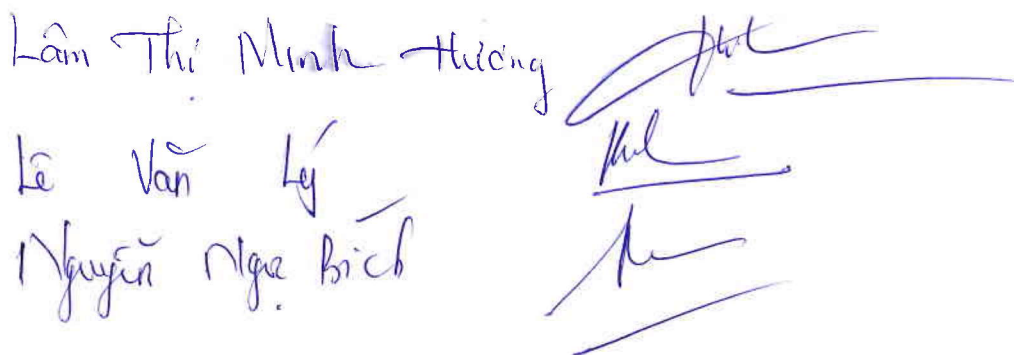 Lâm Thị Minh Hương
Lê Văn Lý
Nguyễn Ngọc Bích